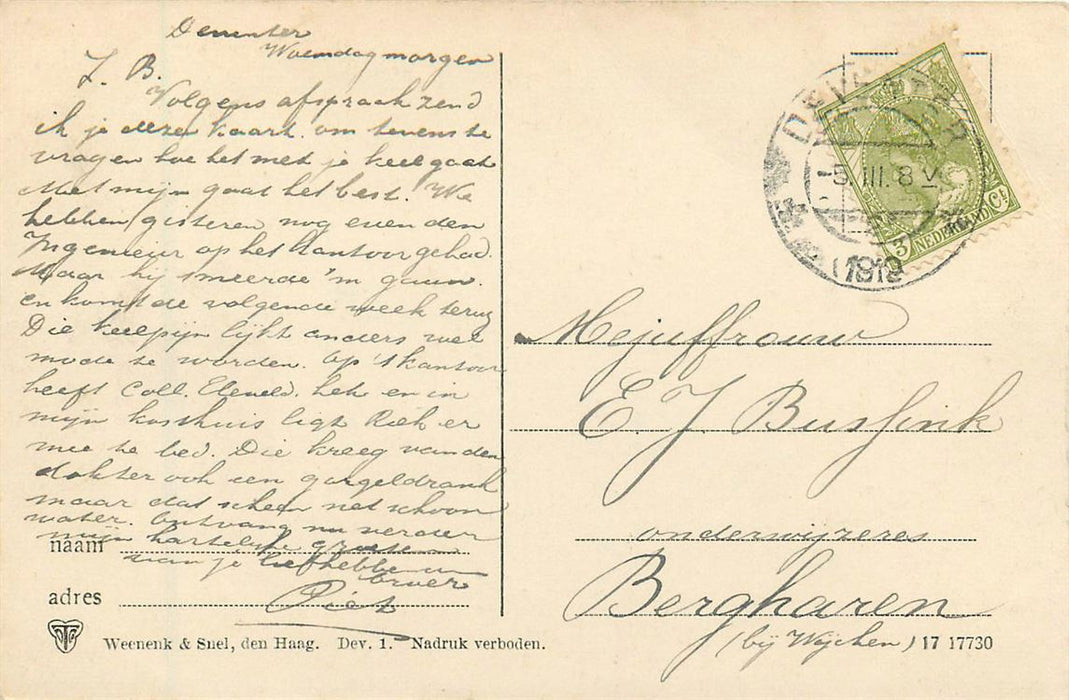 Deventer
Woensdagmorgen
Z. B.
Volgens afspraak zend
ik je deze kaart om tevens te
vragen hoe het met je keel gaat
Met mijn gaat het best. We
hebben gisteren nog even den
Ingenieur op het kantoor gehad.
Maar hij smeerde 'm gauw.
en komt de volgende week terug
Die keelpijn lijkt anders wel
mode te worden. Op 't kantoor
heeft Coll. het en in
mijn kosthuis ligt Riek er
mee te bed. Die kreeg van den
dokter ook een gorgeldrank
maar dat scheen net schoon
water. Ontvang nu verder
mijn hartelijke groeten
van je liefhebbenden
broer
Piet
naam
adres
Weenenk & Snel, den Haag. Dev. 1. Nadruk verboden.
DEVENTER
5.III. 8 V
1919
3 NEDERLAND Ct
Mejuffrouw
E J Bussink
onderwijzeres
Bergharen
(bij Wijchen)
17 17730